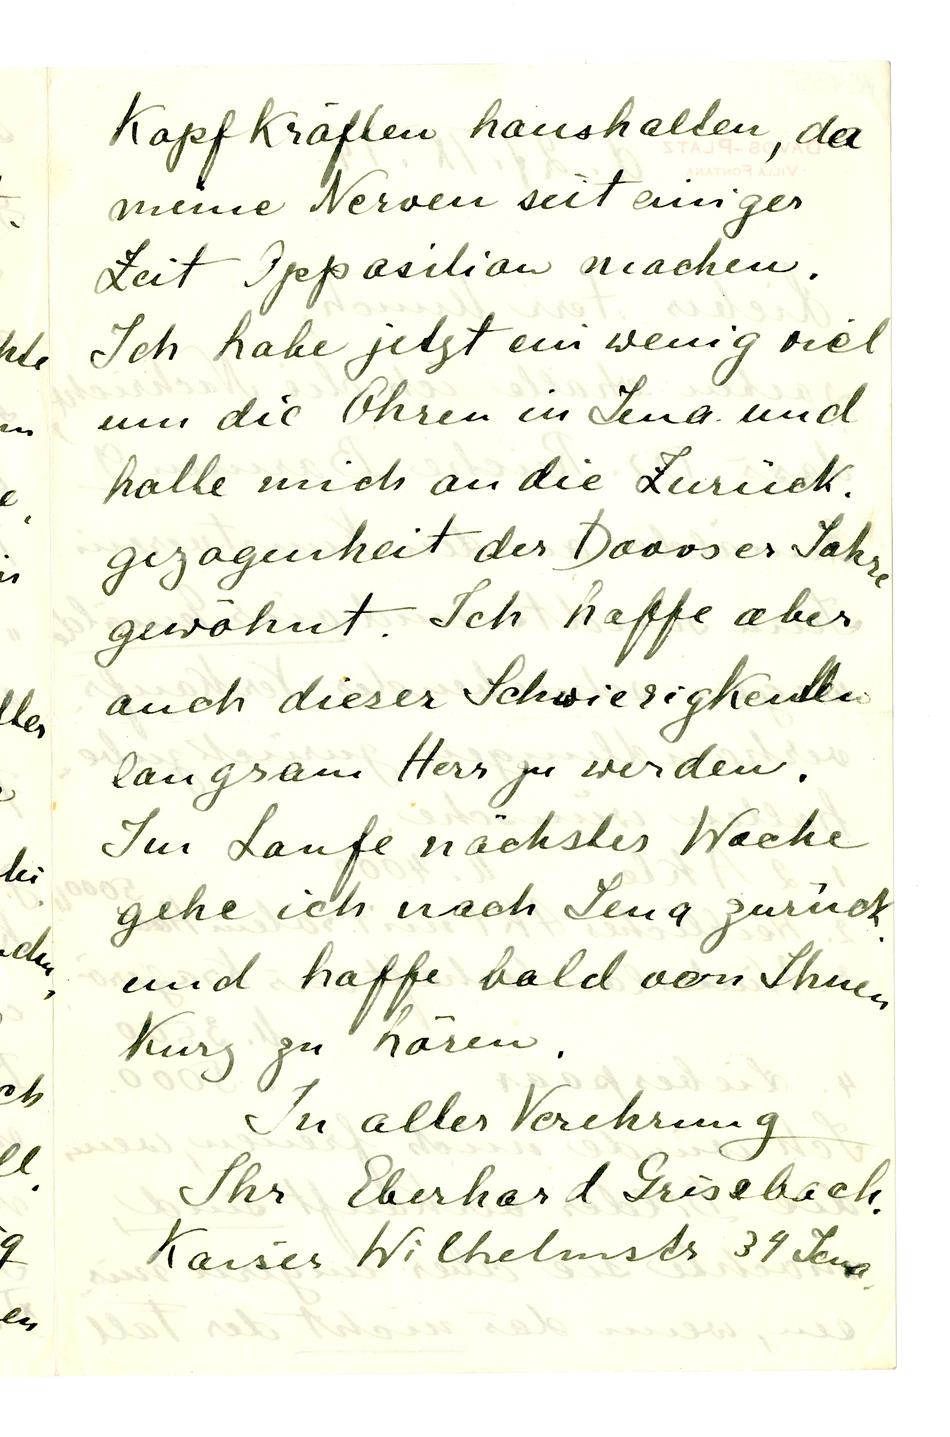 Kopfkräften haushalten, da
meine Nerven seit einiger
Zeit Opposition machen.
Ich habe jetzt ein wenig viel
um die Ohren in Jena und
hatte mich an die Zurück-
gezogenheit der Davoser Jahre
gewöhnt. Ich hoffe aber
auch dieser Schwierigkeiten
langsam Herr zu werden.
Im Laufe nächster Woche
gehe ich nach Jena zurück
und hoffe bald von Ihnen
Kurz zu hören.
In aller Verehrung
Ihr Eberhard Grisebach.
Kaiser Wilhelmstr 34 Jena.